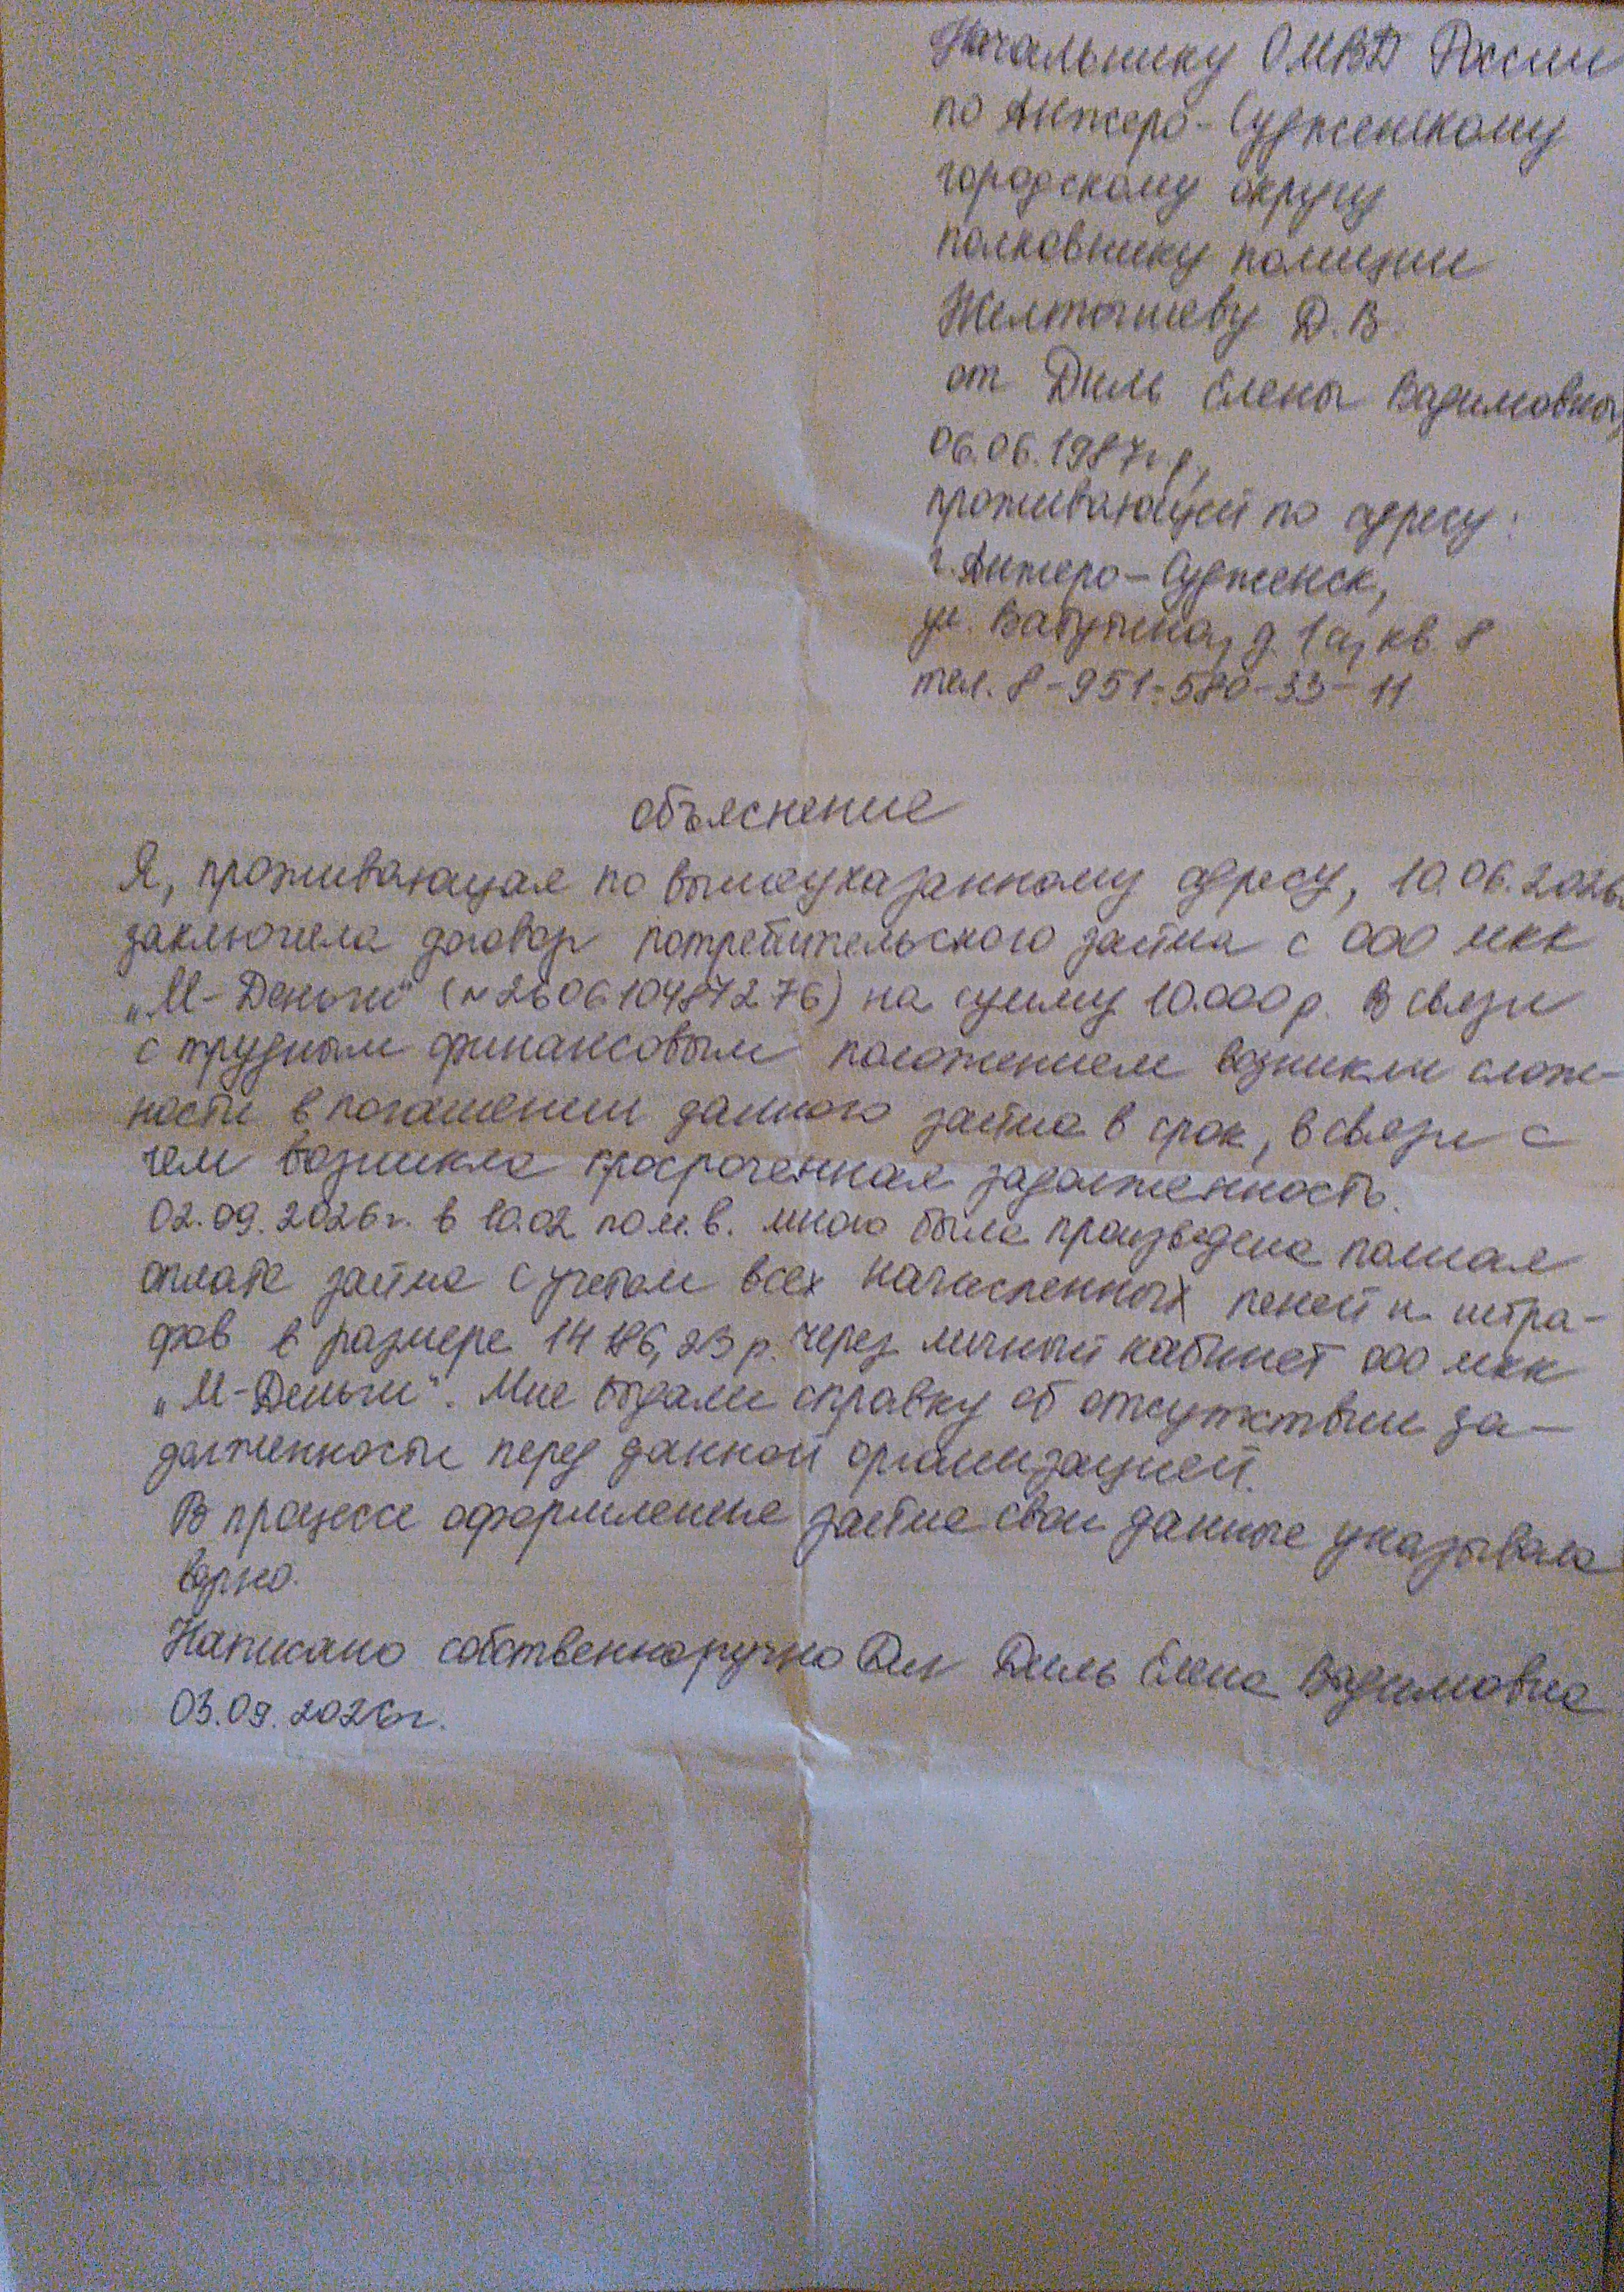 Начальнику ОМВД России
по Анжеро-Судженскому
городскому округу
полковнику полиции
Желтышеву Д.В.
от Диль Елены Вадимовны,
06.06.1987г.р.,
проживающей по адресу:
г. Анжеро-Судженск,
ул. Ватутина, д. 1а, кв. 8
тел. 8-951-580-33-11
объяснение
Я, проживающая по вышеуказанному адресу, 10.06.2026г.
заключила договор потребительского займа с ООО МКК
„М-Деньги" (№26061048 276) на сумму 10.000р. В связи
с трудным финансовым положением возникли слож-
ности в погашении данного займа в срок, в связи с
чем возникла просроченная задолженность.
02.09.2026г. в 10.02 по м.в. мною была произведена полная
оплата займа с учетом всех начисленных пеней и штра-
фов в размере 14 186,23 р. через личный кабинет ООО МКК
„М-Деньги". Мне выдали справку об отсутствии за-
долженности перед данной организацией.
В процессе оформления займа свои данные указывала
верно.
Написано собственноручно Дил Диль Елена Вадимовна
03.09.2026г.